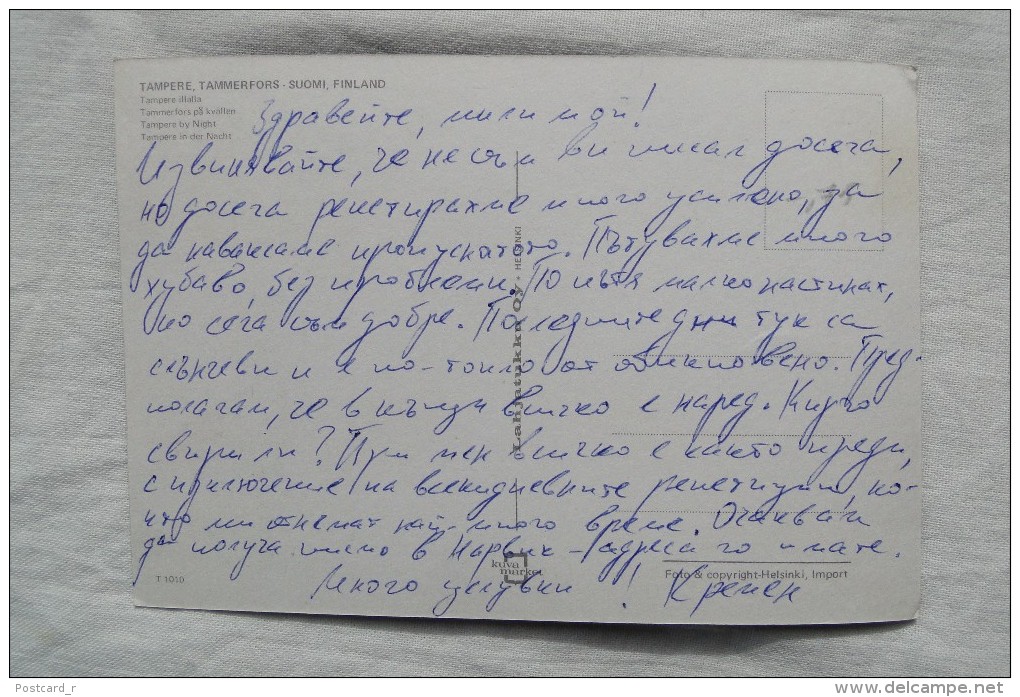 TAMPERE, TAMMERFORS - SUOMI, FINLAND
Tampere illalla
Tammerfors på kvällen
Tampere by Night
Tampere in der Nacht
Здравейте, мили мои!
Извинявайте, че не съм ви писал досега,
но досега репетирахме много усилено, за
да наваксаме пропуснатото. Пътувахме много
хубаво, без проблеми. По пътя малко настинах,
но сега съм добре. Последните дни тук са
слънчеви и е по-топло от обикновено. Пред-
полагам, че в къщи всичко е наред. Кирчо
свири ли? При мен всичко е както преди,
с изключение на всекидневните репетиции, кои-
то ми отнемат най-много време. Очаквам
да получа писмо в Нарвик - адреса го имате.
Много целувки! Кремен
Lahjatukku Oy • HELSINKI
kuva
market
T 1010
Foto & copyright-Helsinki, Import
Postcard_r
www.delcampe.net